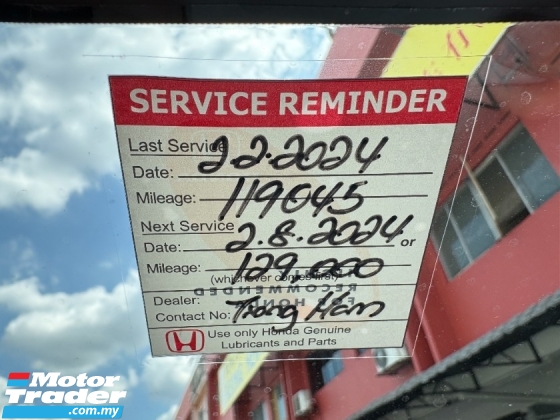 SERVICE REMINDER
Last Service
Date: 2.2.2024
Mileage: 119045
Next Service
Date: 2.8.2024 or
Mileage: 129,000
(whichever comes first)
RECOMMENDED
FOR HONDA
Dealer:
Contact No: Tiong Nam
Use only Honda Genuine
Lubricants and Parts
Motor
Trader
.com.my